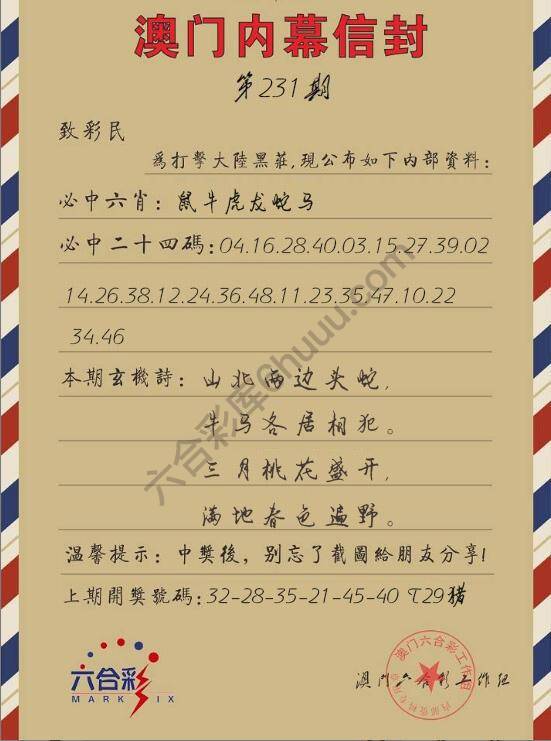 澳门内幕信封
第231期
致彩民
為打擊大陸黑莊,現公布如下内部資料:
必中六肖:鼠牛虎龙蛇马
必中二十四碼:04.16.28.40.03.15.27.39.02
14.26.38.12.24.36.48.11.23.35.47.10.22
34.46
本期玄機詩:山北两边头蛇,
牛马各居相犯。
三月桃花盛开,
满地春色遍野。
温馨提示:中獎後,别忘了截圖給朋友分享!
上期開獎號碼:32-28-35-21-45-40 T29猪
六合彩
MARK SIX
澳门六合彩工作组
澳门六合彩工作组
六合彩库@huuu.com